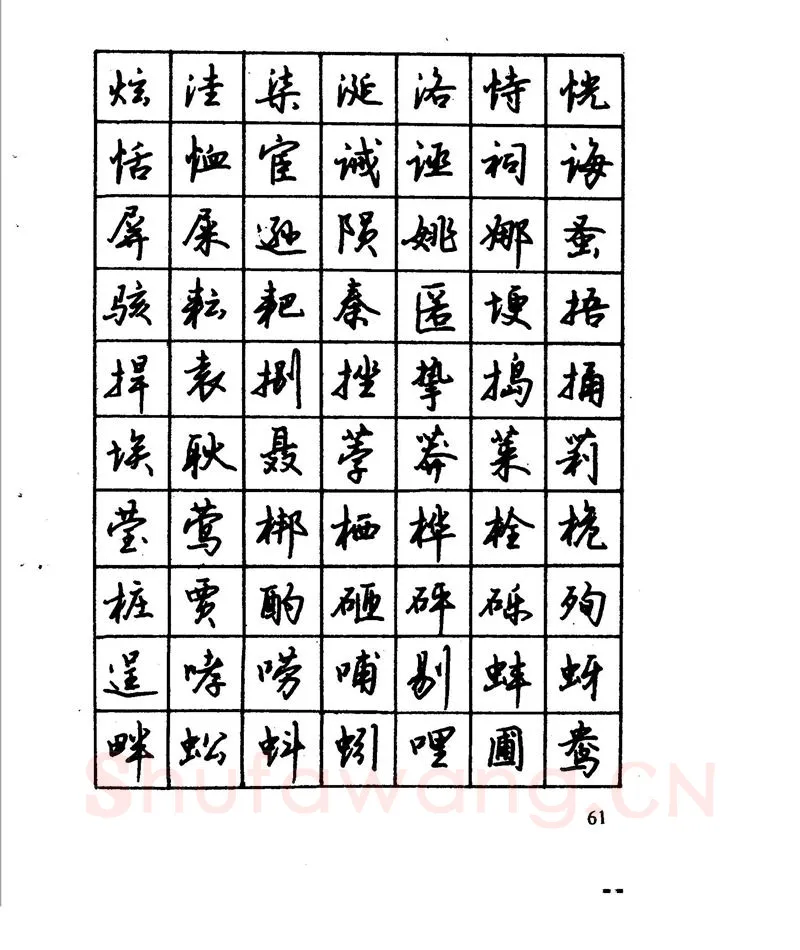 炫 洼 柒 涎 洛 恃 恍
恬 恤 宦 诫 诬 祠 诲
屏 屎 逊 陨 姚 娜 蚤
骇 耘 耙 秦 匿 埂 捂
捍 袁 捌 挫 挚 捣 捅
埃 耿 聂 荸 莽 莱 莉
莹 莺 梆 栖 桦 栓 桅
桩 贾 酌 砸 砰 砾 殉
逞 哮 唠 哺 剔 蚌 蚜
畔 蚣 蚪 蚓 哩 圃 鸯
Shufawang.CN
61